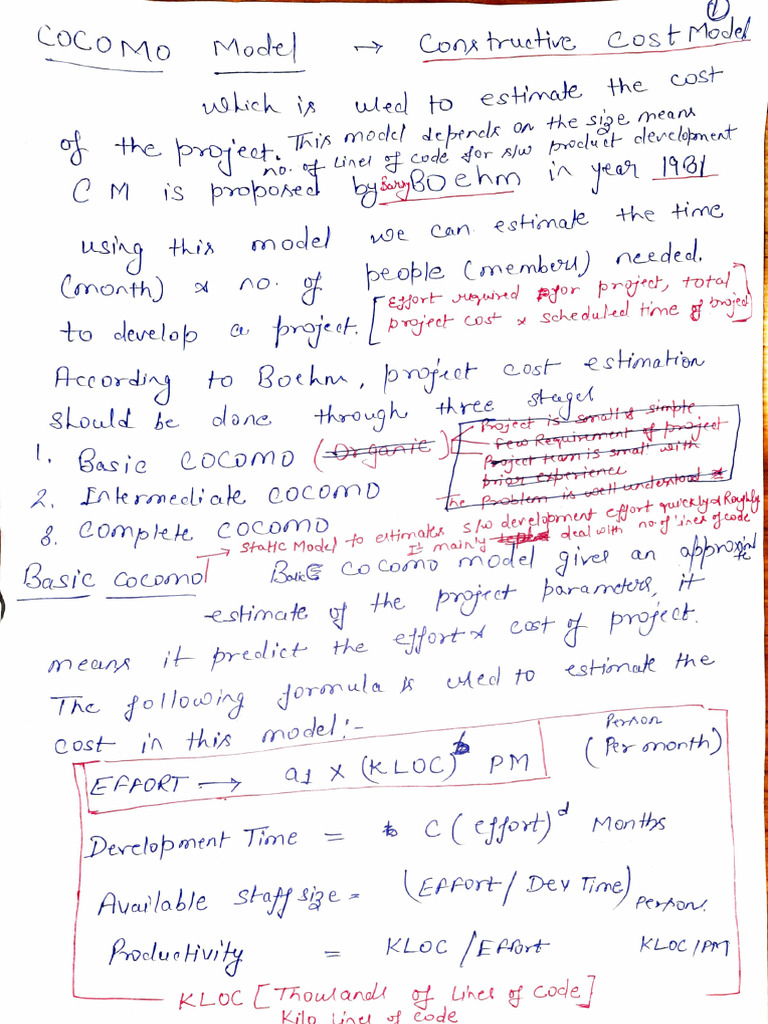 1
COCOMO Model → Constructive Cost Model
which is used to estimate the cost
of the project. This model depends on the size means
no. of lines of code for s/w product development
C M is proposed by Barry Boehm in year 1981
using this model we can estimate the time
(month) & no. of people (members) needed.
to develop a project. [Effort required for project, total
project cost & scheduled time of project]
According to Boehm, project cost estimation
should be done through three stages
1. Basic COCOMO (Organic)
Project is small & simple
few Requirement of project
Project team is small with
prior experience
The problem is well understood
2. Intermediate COCOMO
3. Complete COCOMO
→ Static Model to estimates s/w development effort quickly & Roughly
It mainly deal with no. of lines of code
Basic COCOMO Basic COCOMO model gives an approximate
estimate of the project parameters, it
means it predict the effort & cost of project.
The following formula is used to estimate the
cost in this model:-
EFFORT → a1 × (KLOC)^b PM (Person Per month)
Development Time = C (effort)^d Months
Available staff size = (Effort / Dev Time) Person.
Productivity = KLOC / Effort KLOC/PM
KLOC [Thousands of Lines of code]
Kilo Lines of code